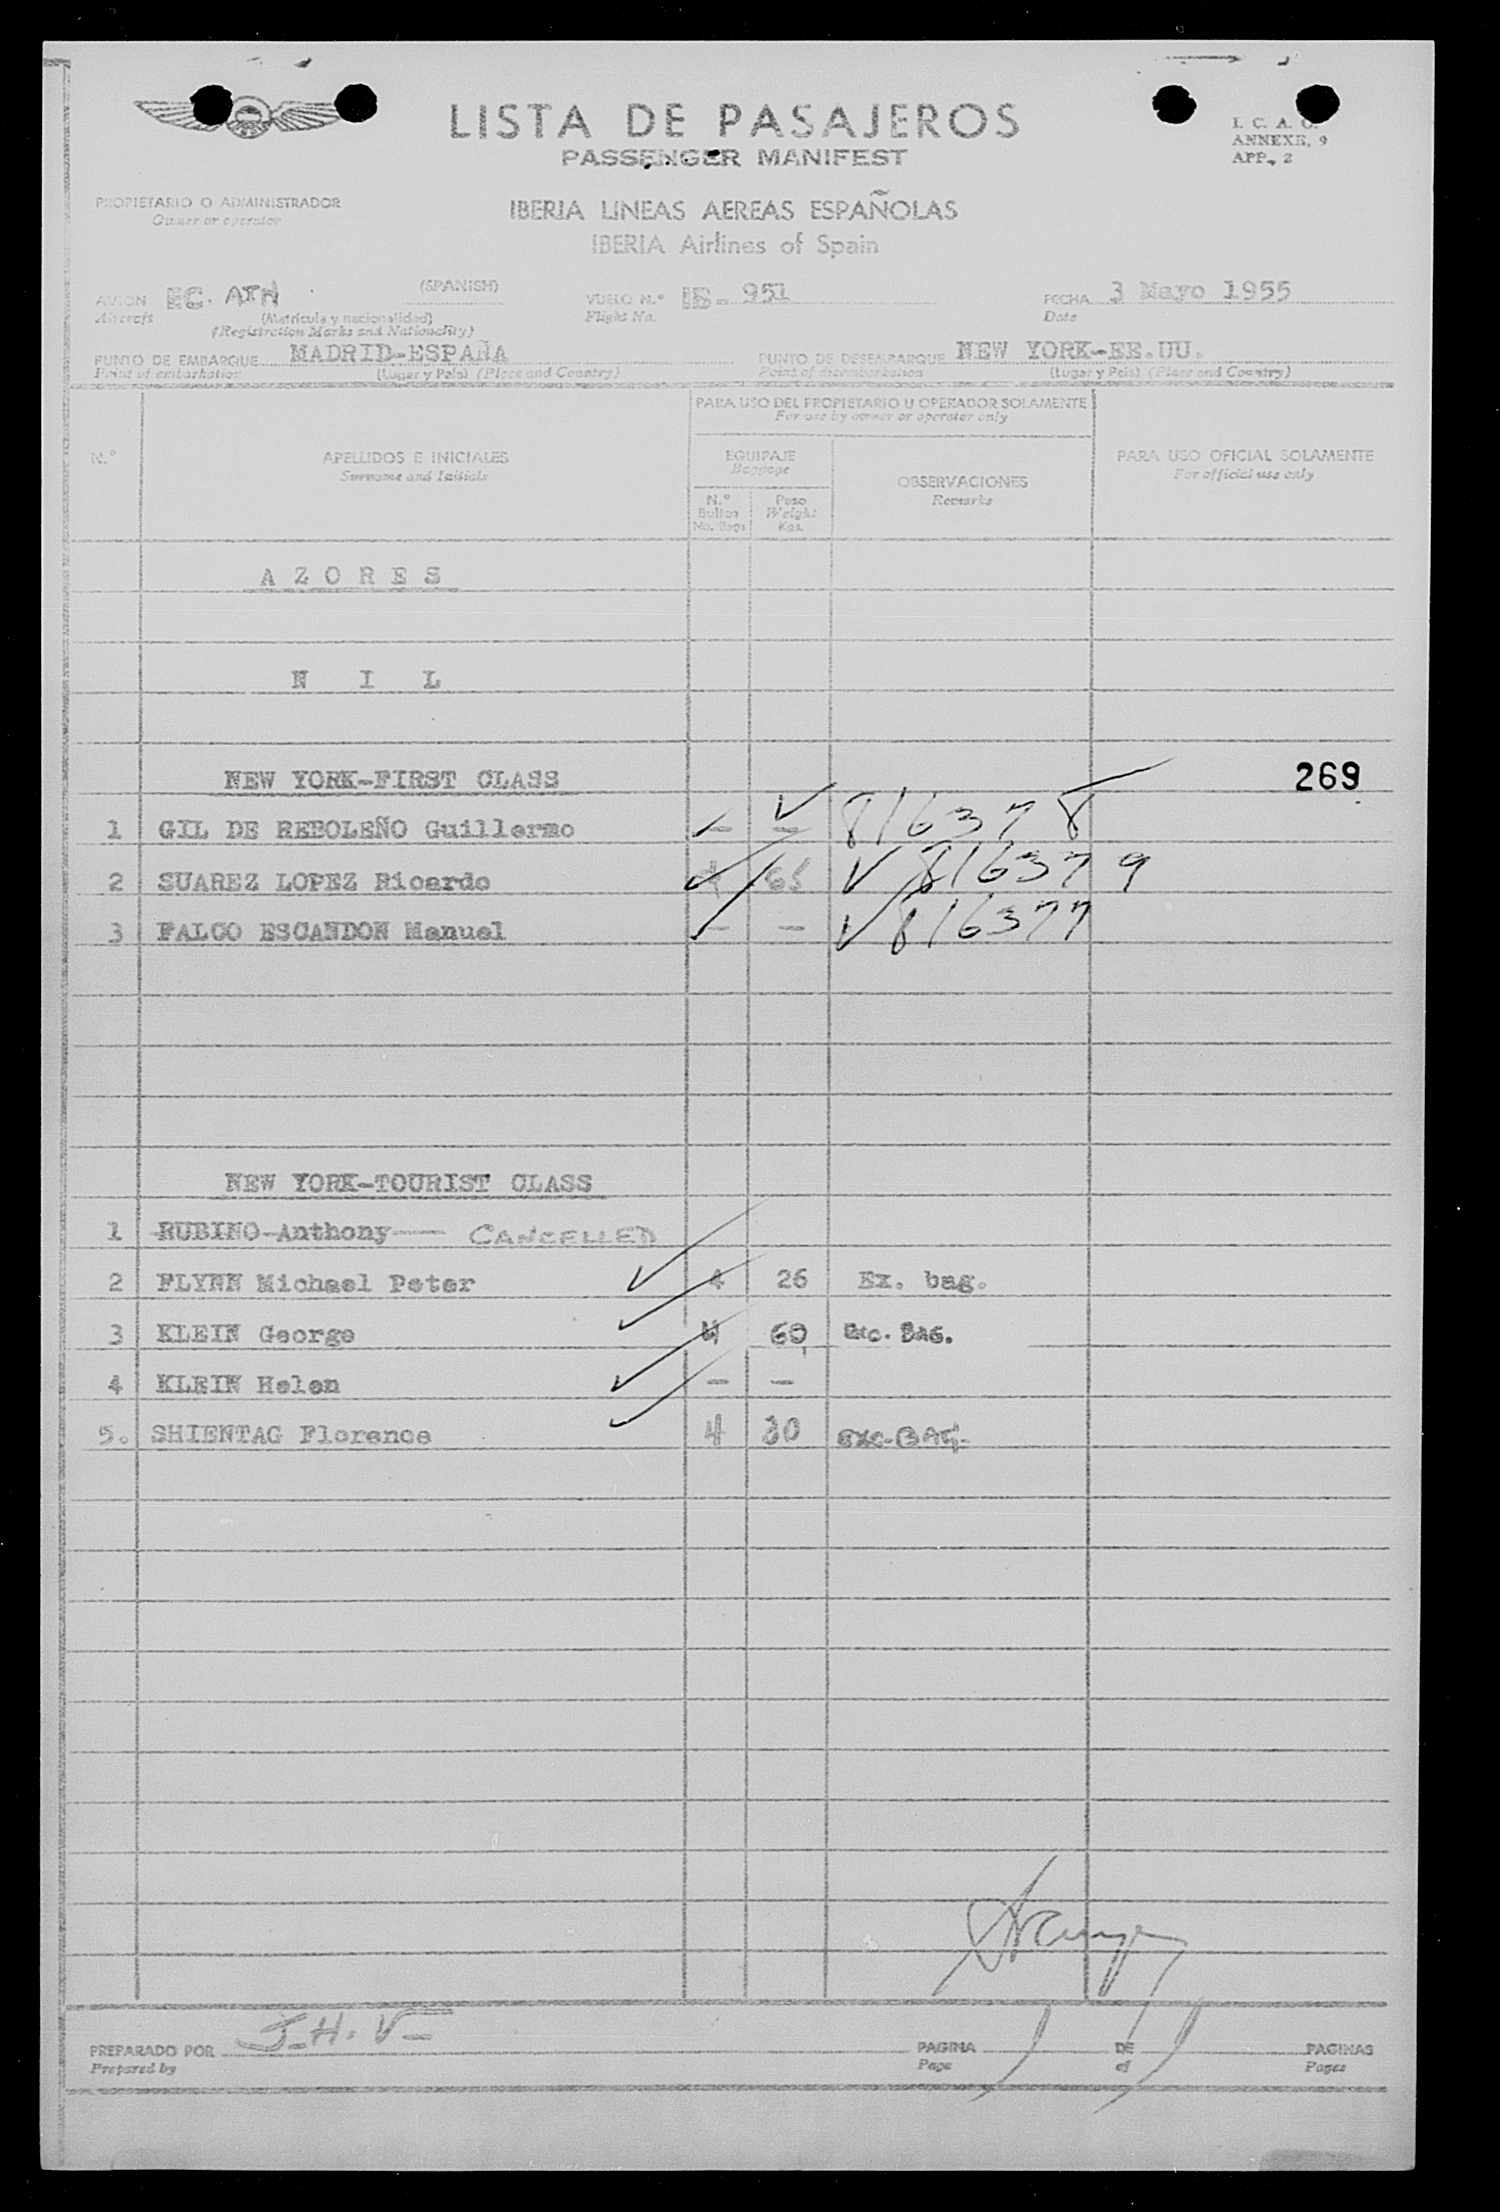 LISTA DE PASAJEROS
PASSENGER MANIFEST
I. C. A. O.
ANNEXE, 9
APP. 2
PROPIETARIO O ADMINISTRADOR
Owner or operator
IBERIA LINEAS AEREAS ESPAÑOLAS
IBERIA Airlines of Spain
AVION EC. ATN (SPANISH) VUELO N.º IB-951 FECHA 3 Mayo 1955
Aircraft (Matrícula y nacionalidad) Flight No. Date
(Registration Marks and Nationality)
PUNTO DE EMBARQUE MADRID-ESPAÑA PUNTO DE DESEMBARQUE NEW YORK-EE.UU.
Point of embarkation (Lugar y País) (Place and Country) Point of disembarkation (Lugar y País) (Place and Country)
PARA USO DEL PROPIETARIO U OPERADOR SOLAMENTE
For use by owner or operator only
N.º APELLIDOS E INICIALES EQUIPAJE PARA USO OFICIAL SOLAMENTE
Surname and Initials Baggage OBSERVACIONES For official use only
N.º Peso Remarks
Bultos Weight
No. Bags Kgs.
AZORES
NIL
NEW YORK-FIRST CLASS 269
1 GIL DE REBOLEÑO Guillermo - - 816378
2 SUAREZ LOPEZ Ricardo 65 816379
3 FALCO ESCANDON Manuel - - 816377
NEW YORK-TOURIST CLASS
1 RUBINO Anthony CANCELLED
2 FLYNN Michael Peter 4 26 Ex. bag.
3 KLEIN George 4 60 Exc. BAG.
4 KLEIN Helen - -
5. SHIENTAG Florence 4 30 EXC-BAG-
PREPARADO POR J.H.V- PAGINA 1 DE 1 PAGINAS
Prepared by Page of Pages